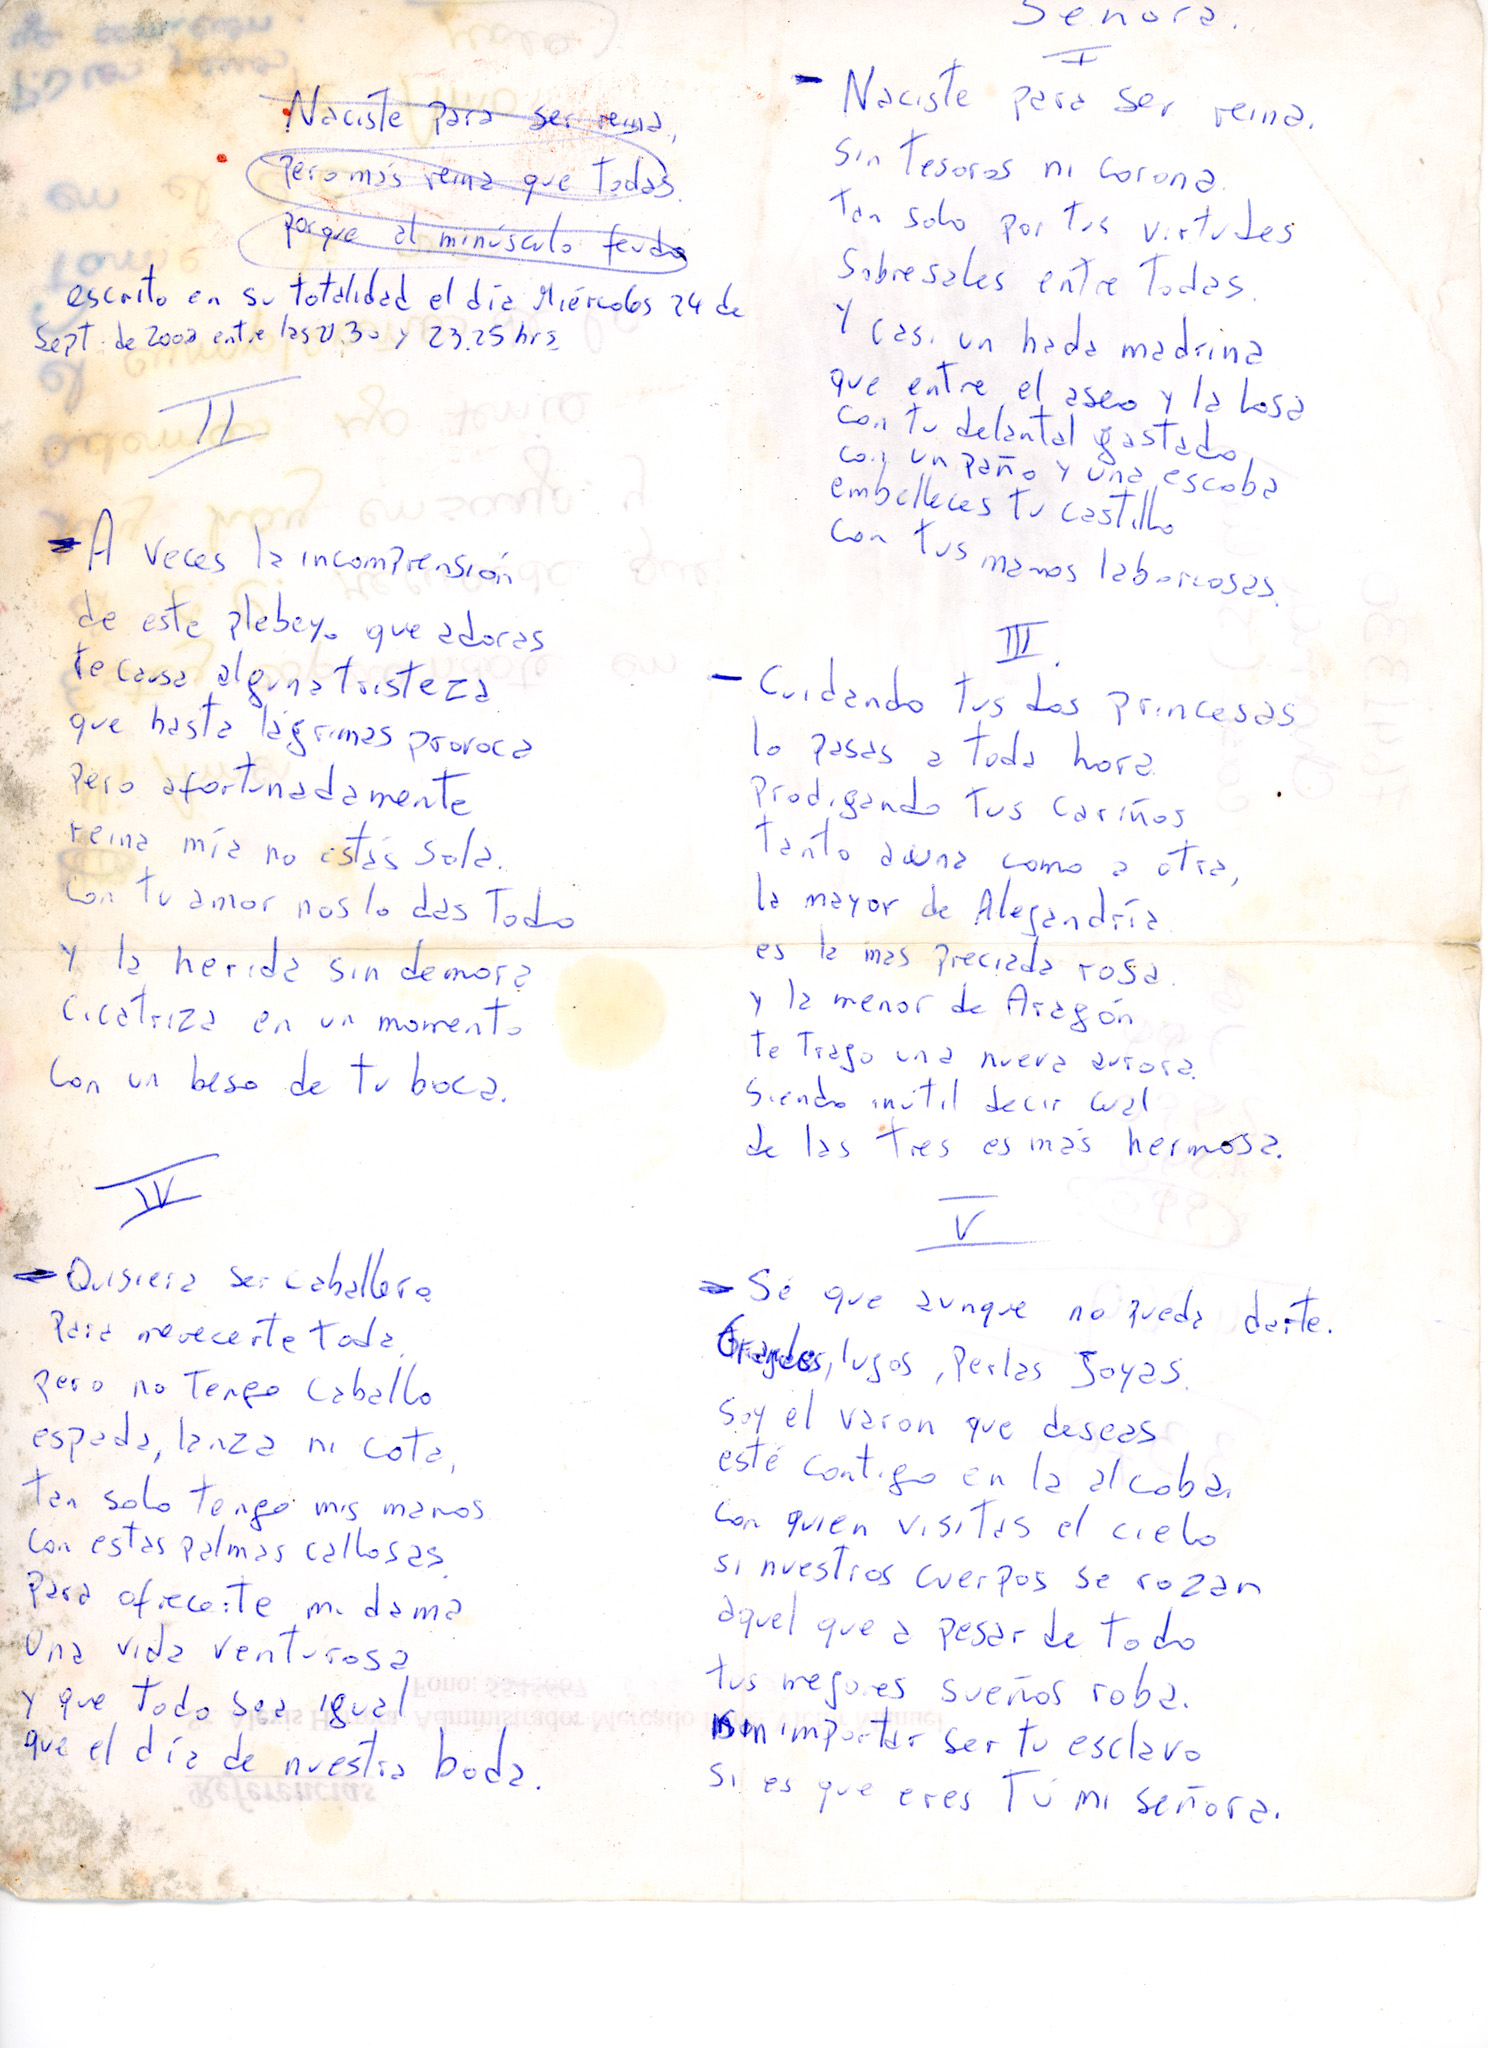 Señora.
I
- Naciste para ser reina.
sin tesoros ni corona.
tan solo por tus virtudes
Sobresales entre todas.
Y casi un hada madrina
que entre el aseo y la losa
con tu delantal gastado,
con un paño y una escoba
embelleces tu castillo
con tus manos laboriosas.
Naciste para ser reina,
pero más reina que todas.
porque al minúsculo feudo
escrito en su totalidad el día Miércoles 24 de
Sept. de 2002 entre las 21.30 y 23.25 hrs.
II
- A veces la incomprensión
de este plebeyo que adoras
te causa alguna tristeza
que hasta lágrimas provoca
pero afortunadamente
reina mía no estás sola.
Con tu amor nos lo das todo
y la herida sin demora
cicatriza en un momento
con un beso de tu boca.
III.
- Cuidando tus dos princesas
lo pasas a toda hora
prodigando tus cariños
tanto a una como a otra,
la mayor de Alegandría
es la mas preciada rosa.
y la menor de Aragón
te trago una nueva aurora.
Siendo inútil decir cual
de las tres es más hermosa.
IV
- Quisiera ser caballero
para merecerte toda.
pero no tengo caballo
espada, lanza ni cota,
tan solo tengo mis manos
con estas palmas callosas.
para ofrecerte mi dama
una vida venturosa
y que todo sea igual
que el día de nuestra boda.
V
- Sé que aunque no pueda darte.
lugos, perlas goyas.
Soy el varon que deseas
esté contigo en la alcoba.
con quien visitas el cielo
si nuestros cuerpos se rozan
aquel que a pesar de todo
tus megores sueños roba.
importar ser tu esclavo
si es que eres Tú mi señora.
Fono:
Alexis Administrador Mercado Manuel
Referencias